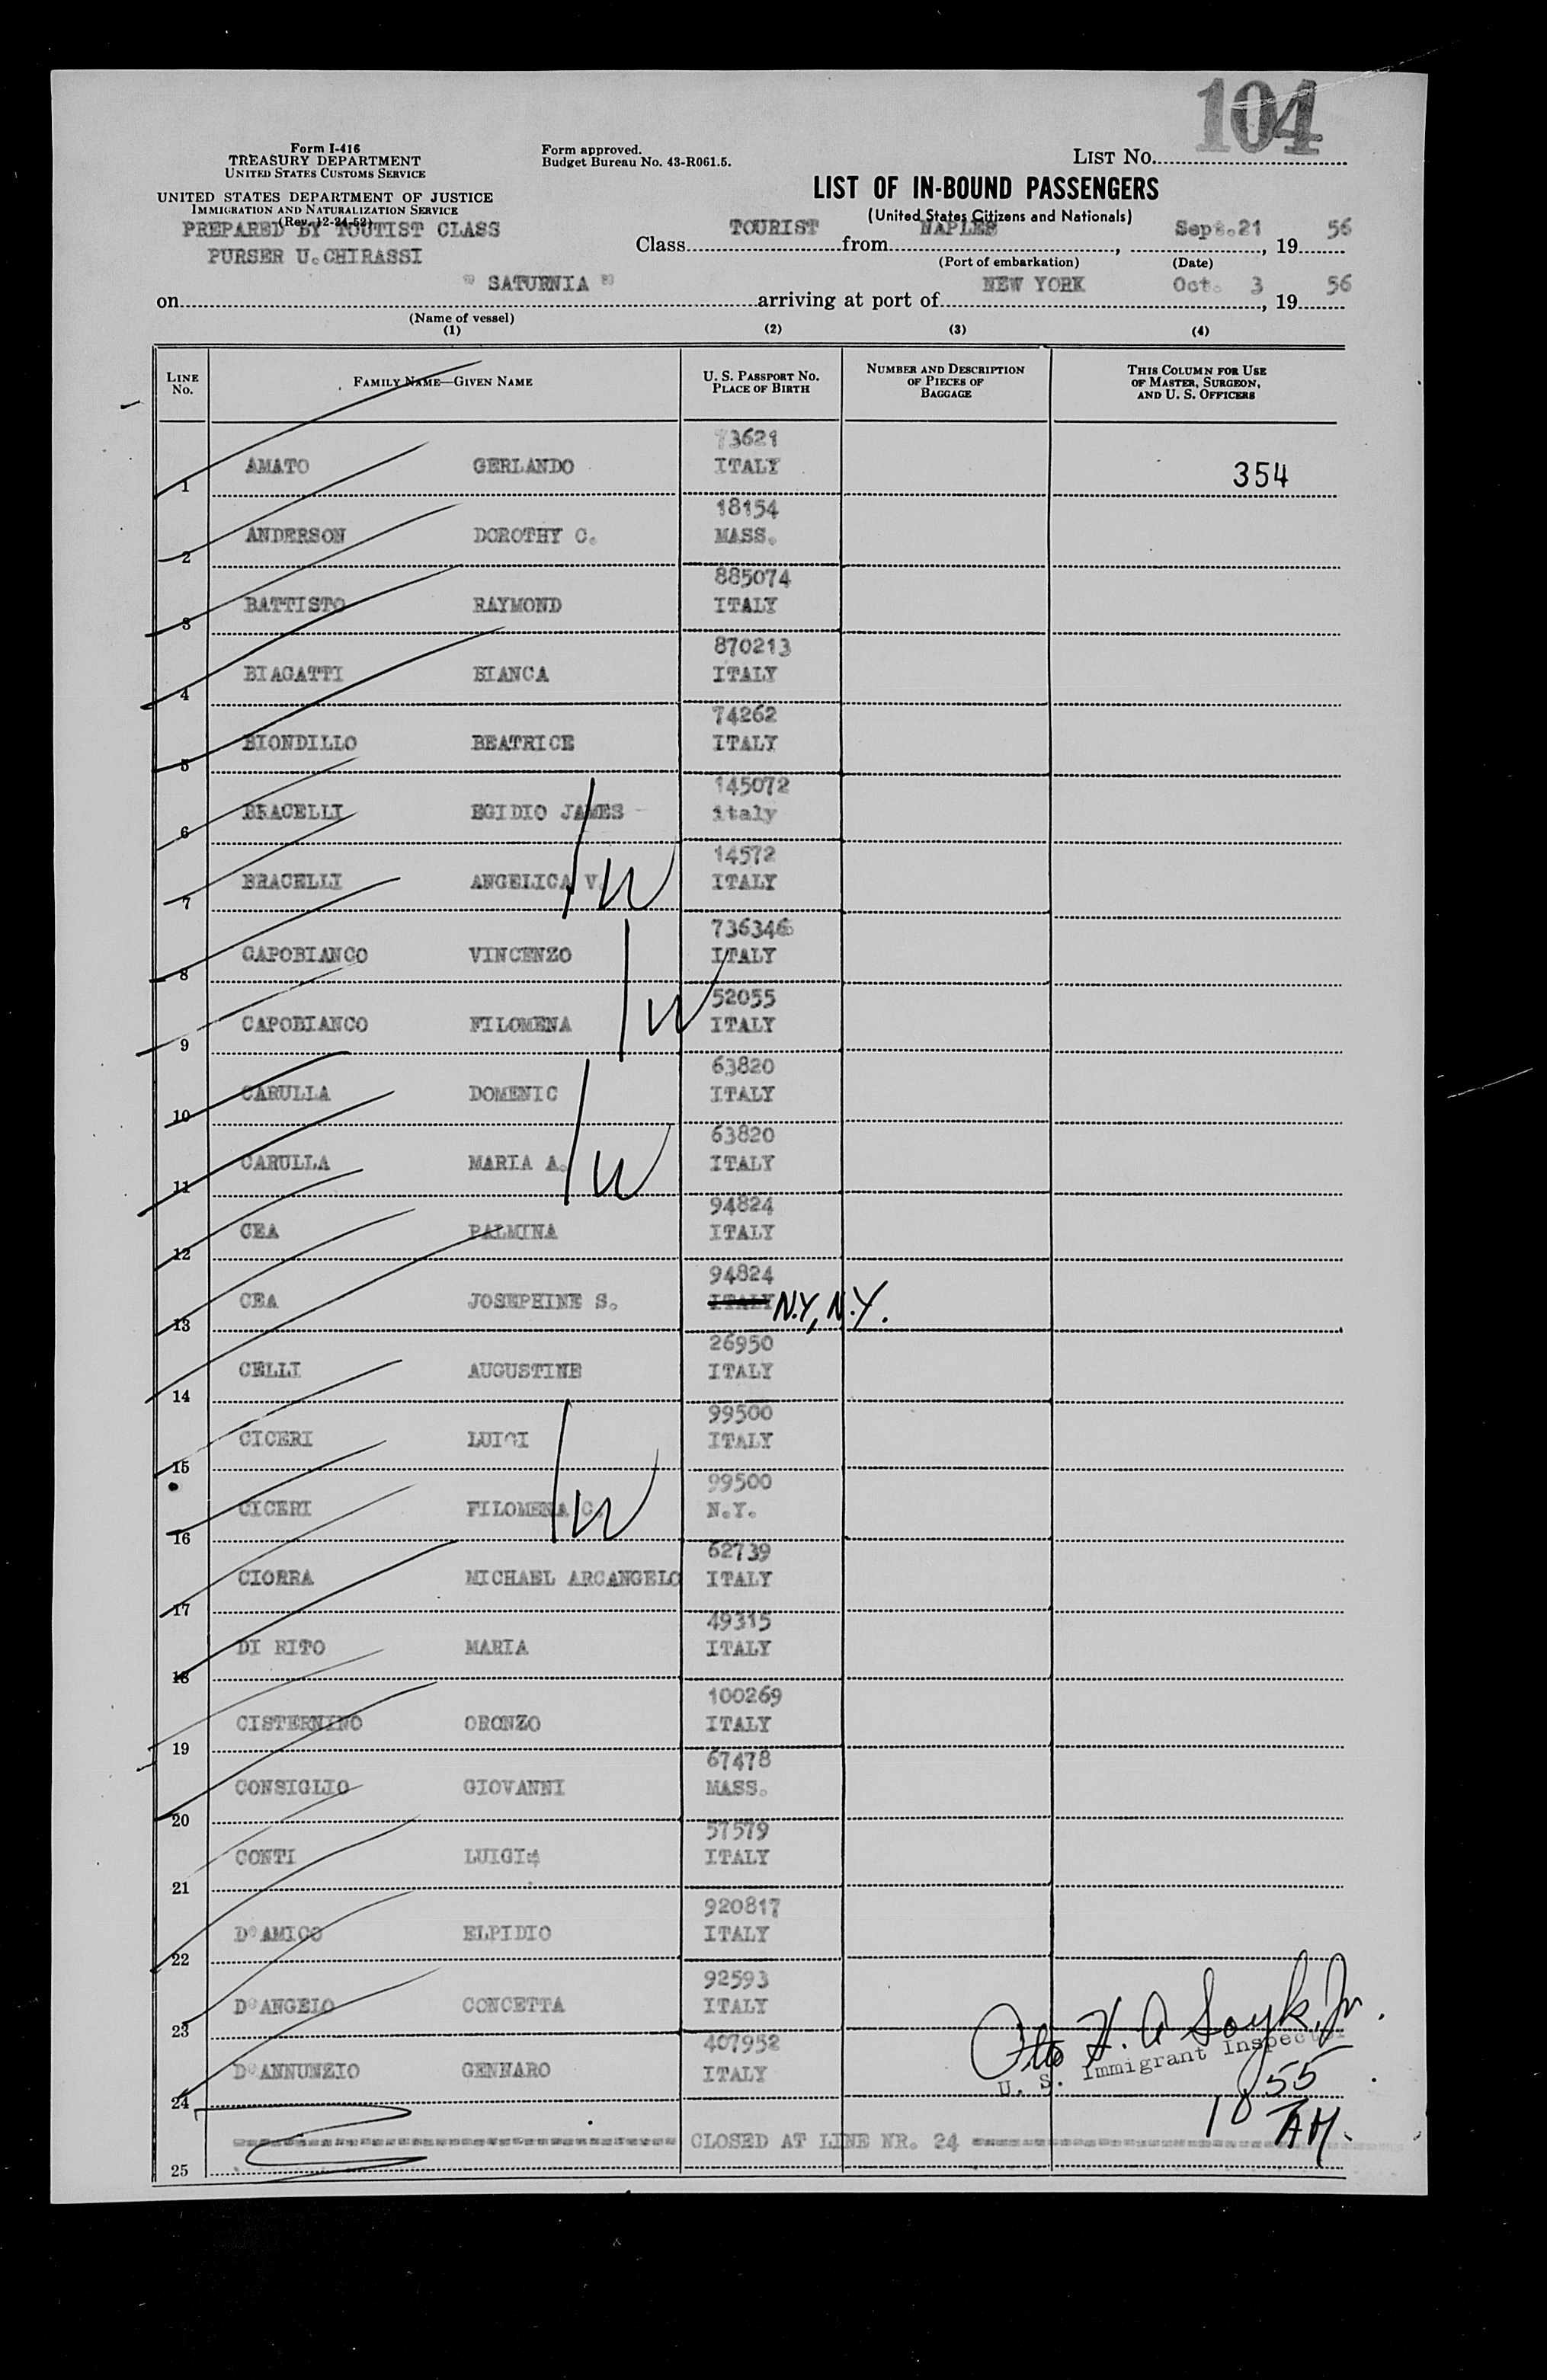 104
Form I-416
TREASURY DEPARTMENT
UNITED STATES CUSTOMS SERVICE
UNITED STATES DEPARTMENT OF JUSTICE
IMMIGRATION AND NATURALIZATION SERVICE
(Rev. 12-24-52)
PREPARED BY TOUTIST CLASS
PURSER U.CHIRASSI
Form approved.
Budget Bureau No. 43-R061.5.
LIST NO.
LIST OF IN-BOUND PASSENGERS
(United States Citizens and Nationals)
Class TOURIST from NAPLES, Sept.21, 19 56
(Port of embarkation) (Date)
on " SATURNIA " arriving at port of NEW YORK Oct. 3, 19 56
(Name of vessel)
(1) (2) (3) (4)
LINE NO. FAMILY NAME—GIVEN NAME U. S. PASSPORT NO. PLACE OF BIRTH NUMBER AND DESCRIPTION OF PIECES OF BAGGAGE THIS COLUMN FOR USE OF MASTER, SURGEON, AND U. S. OFFICERS
73621
1 AMATO GERLANDO ITALY 354
18154
2 ANDERSON DOROTHY C. MASS.
885074
3 BATTISTO RAYMOND ITALY
870213
4 BIAGATTI BIANCA ITALY
74262
5 BIONDILLO BEATRICE ITALY
145072
6 BRACELLI EGIDIO JAMES italy
14572
7 BRACELLI ANGELICA V. ITALY
W
736346
8 CAPOBIANCO VINCENZO ITALY
52055
9 CAPOBIANCO FILOMENA ITALY
W
63820
10 CARULLA DOMENIC ITALY
63820
11 CARULLA MARIA A. ITALY
W
94824
12 CEA PALMINA ITALY
94824
13 CEA JOSEPHINE S. ITALY N.Y, N.Y.
26950
14 CELLI AUGUSTINE ITALY
99500
15 CICERI LUIGI ITALY
99500
16 CICERI FILOMENA C. N.Y.
W
62739
17 CIORRA MICHAEL ARCANGELO ITALY
49315
18 DI RITO MARIA ITALY
100269
19 CISTERNINO ORONZO ITALY
67478
20 CONSIGLIO GIOVANNI MASS.
57579
21 CONTI LUIGI ITALY
920817
22 D'AMICO ELPIDIO ITALY
92593
23 D'ANGELO CONCETTA ITALY
407952
24 D'ANNUNZIO GENNARO ITALY
Otto H. A Soyk, Jr.
U. S. Immigrant Inspector
1055
AM.
CLOSED AT LINE NR. 24
25